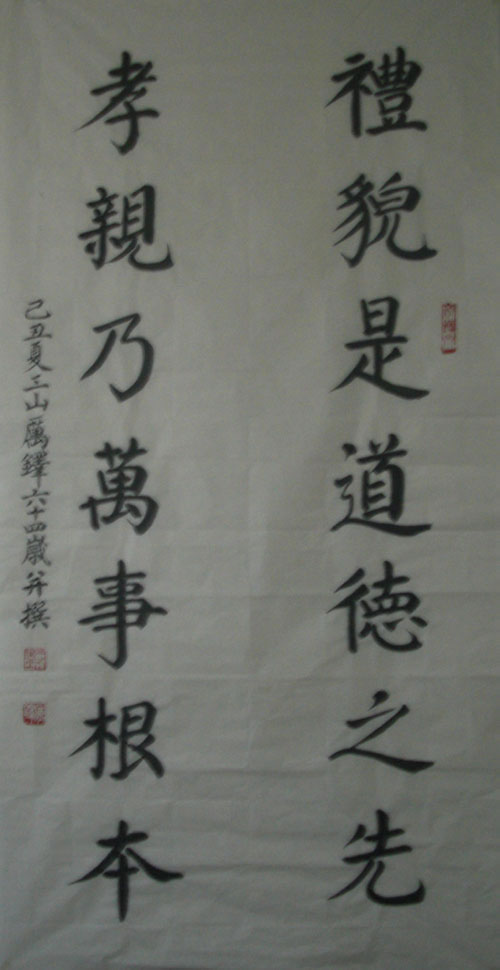 禮貌是道德之先
孝親乃萬事根本
己丑夏三山厲鐸六十四歲并撰